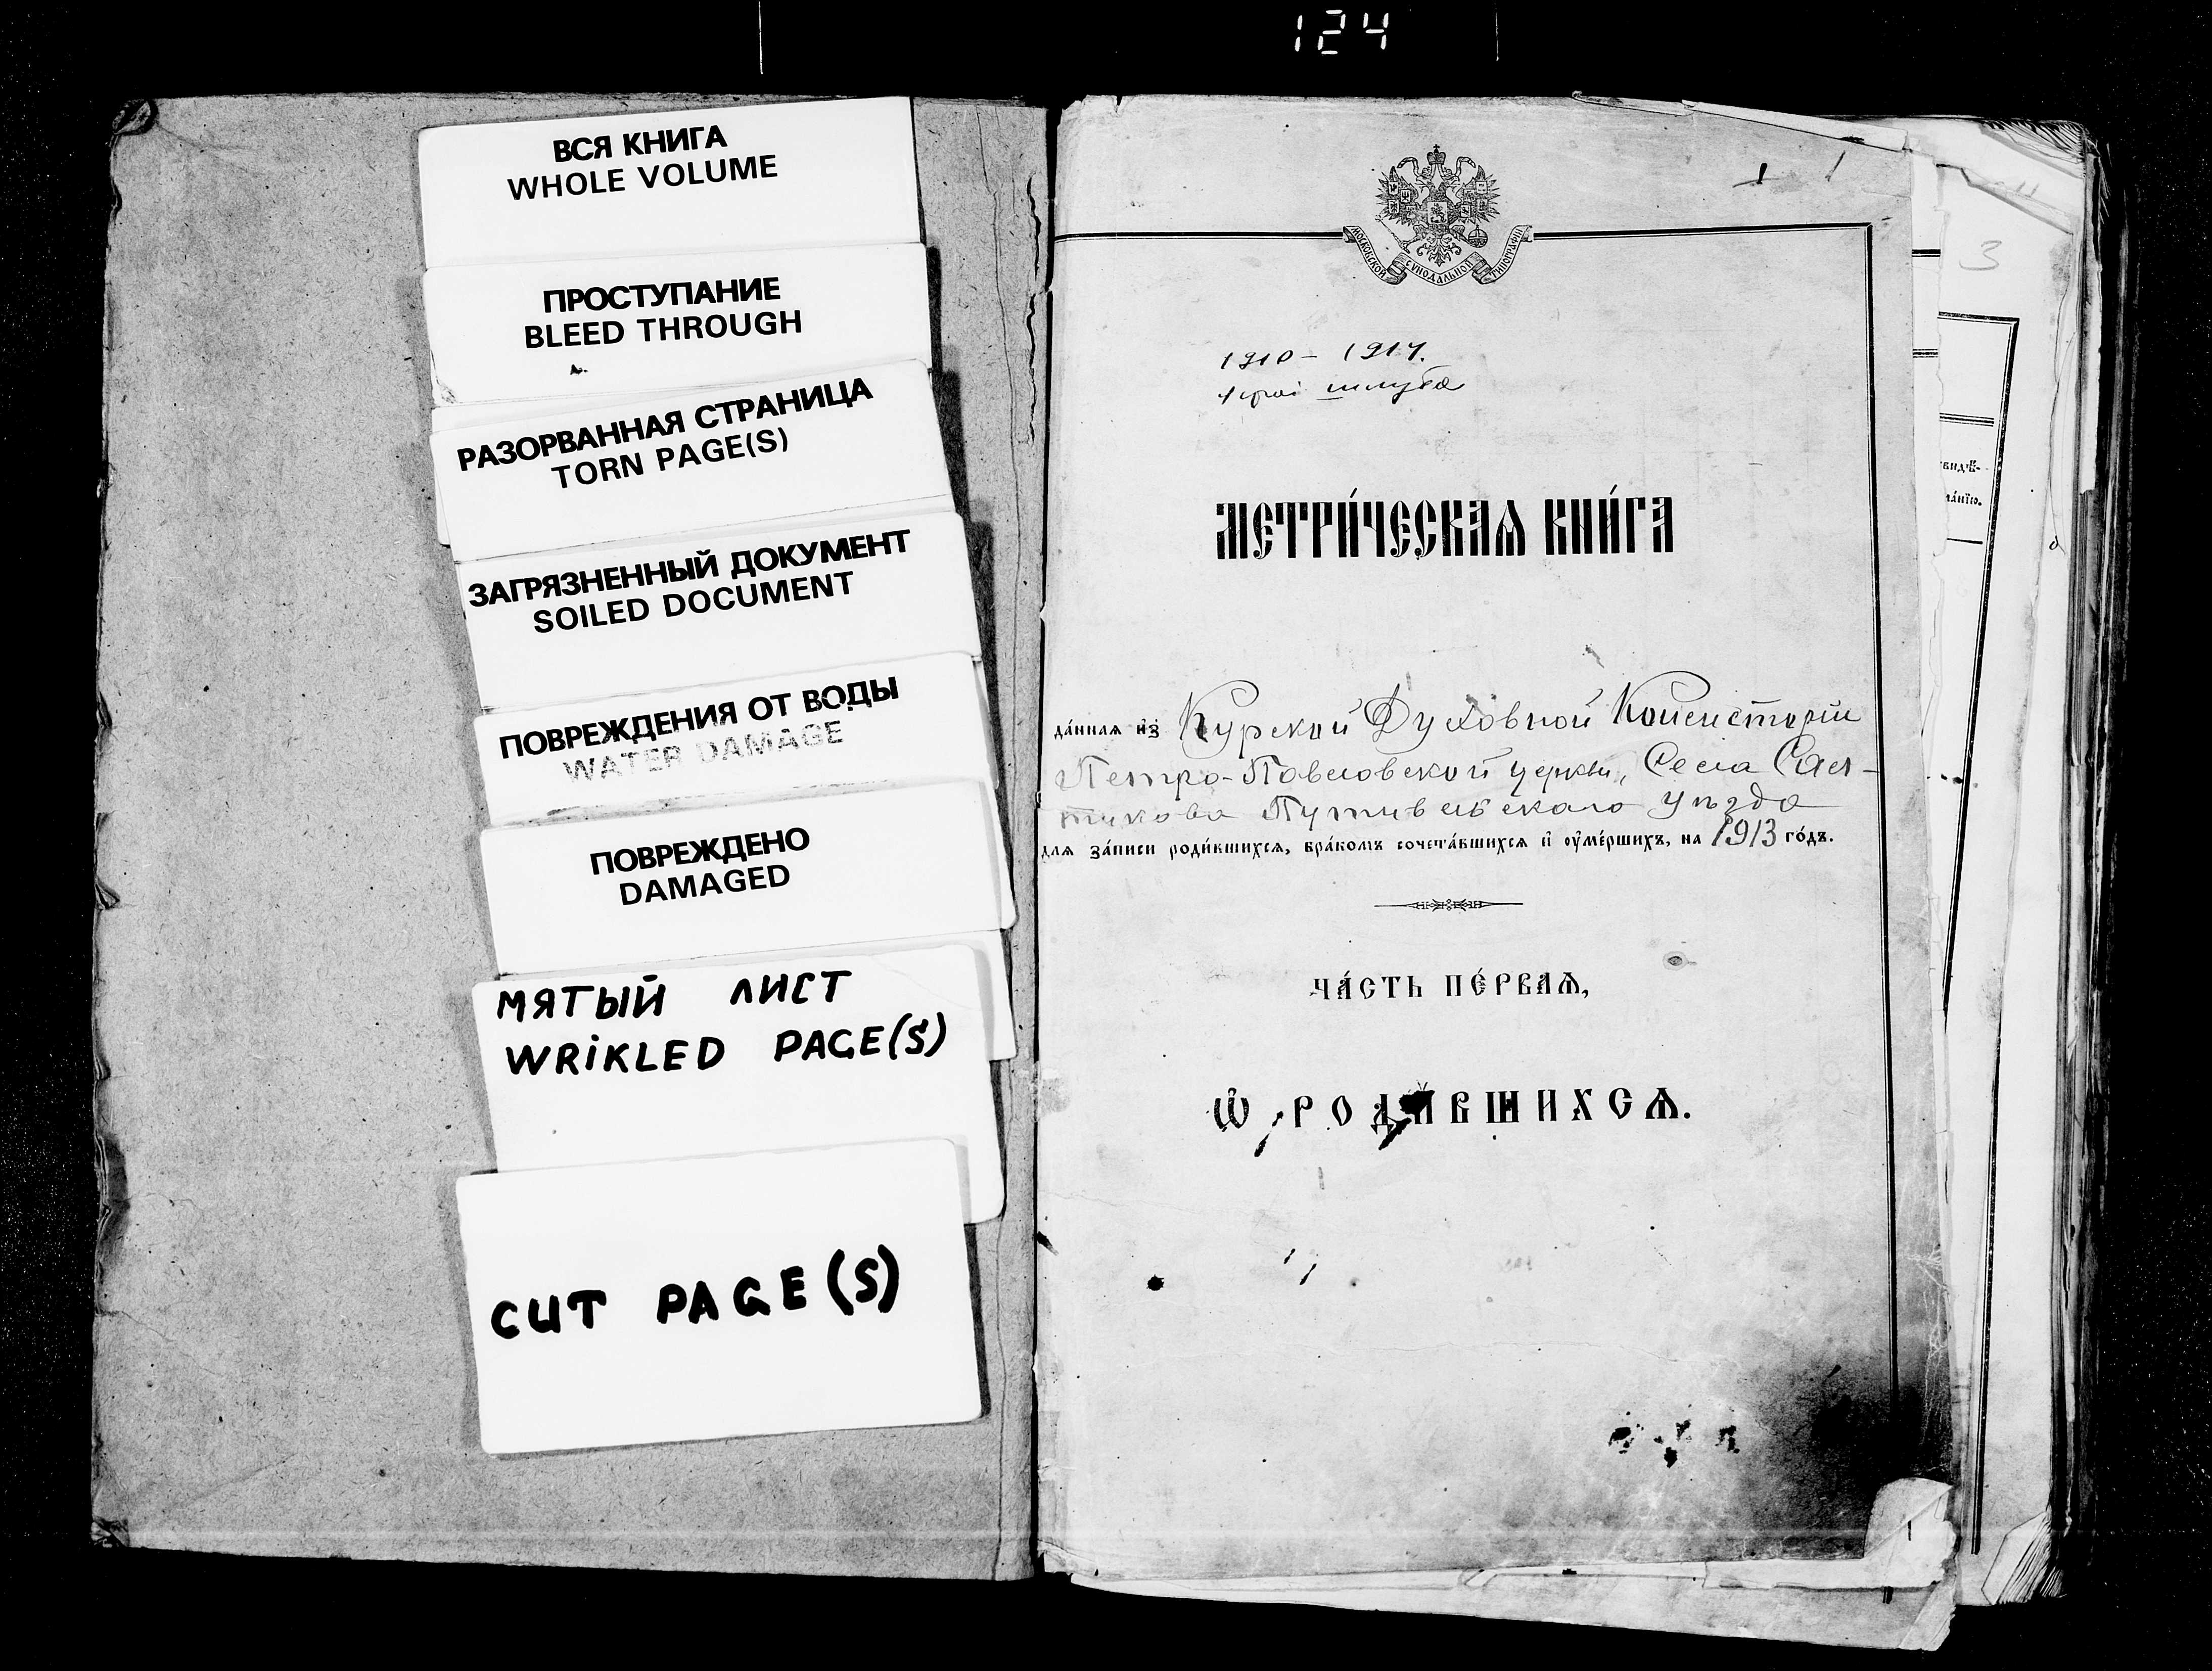 124
ВСЯ КНИГА
WHOLE VOLUME
ПРОСТУПАНИЕ
BLEED THROUGH
РАЗОРВАННАЯ СТРАНИЦА
TORN PAGE(S)
ЗАГРЯЗНЕННЫЙ ДОКУМЕНТ
SOILED DOCUMENT
ПОВРЕЖДЕНИЯ ОТ ВОДЫ
WATER DAMAGE
ПОВРЕЖДЕНО
DAMAGED
МЯТЫЙ ЛИСТ
WRiKLED PAGE(S)
CUT PAGE(S)
1
МОСКОВСКОЙ СѴНОДАЛЬНОЙ ТИПОГРАФІИ
1910 - 1917.
шлуба
МЕТРИ́ЧЕСКАѦ КНИ́ГА
да́нная и҆з̾ Курской Духовной Консисторіи
Петро-Павловской церкви, Села
Путивльскаго уѣзда
для за́писи роди́вшихся, бра́комъ сочета́вшихся и҆ ѹ҆ме́ршихъ, на 1913 го́дъ.
ЧА́СТЬ ПЕ́РВАѦ,
Ѡ҆ РОДИ́ВШИХСѦ.
3
видѣ-
ла́нїю.